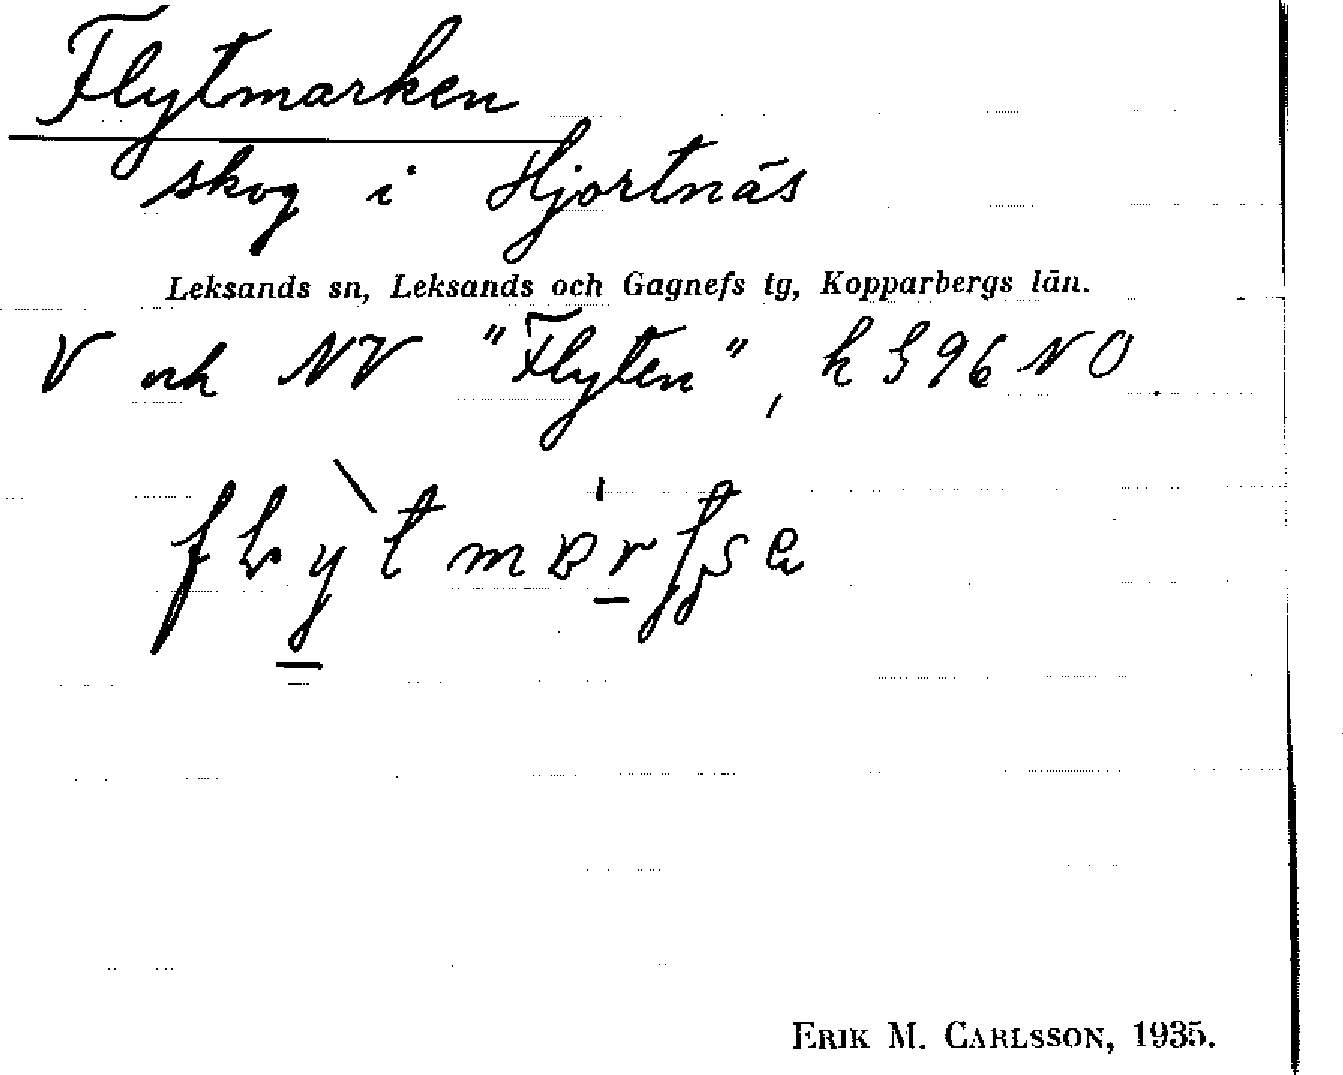 Flytmarken
skog i Hjortnäs
Leksands sn, Leksands och Gagnefs tg, Kopparbergs län.
V och NV "Flyten", k 396 NO.
ERIK M. CARLSSON, 1935.